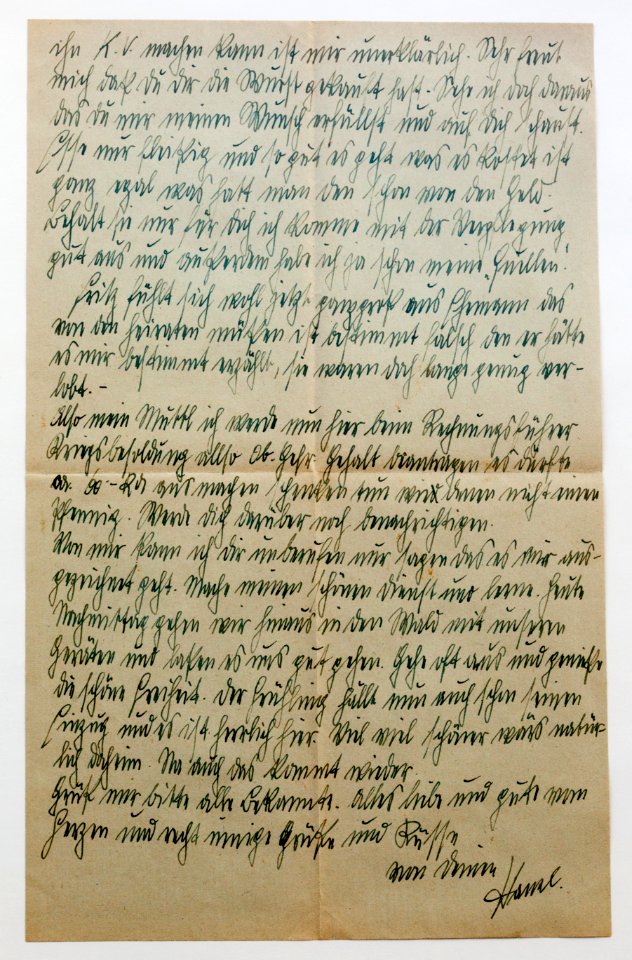 ihn K.V. machen kann ist mir unerklärlich. Sehr freut
mich daß du dir die Wurst gekauft hast. Sehe ich doch daraus
das du mir meinen Wunsch erfüllst und auf dich schaust.
Esse nur fleißig und so gut es geht was es kostet ist
ganz egal was hatt man den schon von den Geld.
Behalt sie nur für dich ich komme mit der Verpflegung
gut aus und außerdem habe ich ja schon meine "Quellen".
Fritz fühlt sich wohl jetzt ganz groß aus Ehemann das
von den heiraten müßen ist bestimmt falsch den er hätte
es mir bestimmt erzählt, sie waren doch lange genug ver-
lobt. -
Also mein Muttl ich werde nun hier beim Rechnungsführer
Kriegsbesoldung allso Ob. Gefr. Gehalt beantragen es dürfte
ca. 90 - RM ausmachen schenken tun wird denen nicht einen
Pfennig. Werde dich darüber noch benachrichtigen.
Von mir kann ich dir unberufen nur sagen das es mir aus-
gezeichnet geht. Mache meinen schönen Dienst und lerne. Heute
Nachmittag gehen wir hinaus in den Wald mit unseren
Geräten und laßen es uns gut gehen. Gehe oft aus und genieße
die schöne Freiheit. Der Frühling hällt nun auch schon seinen
Einzug und es ist herrlich hier. Viel viel schöner wärs natür-
lich daheim. Na auch das kommt wieder.
Grüß mir bitte alle Bekannte. Alles liebe und gute vom
Herzen und recht innige Grüße und Küsse
von deinen